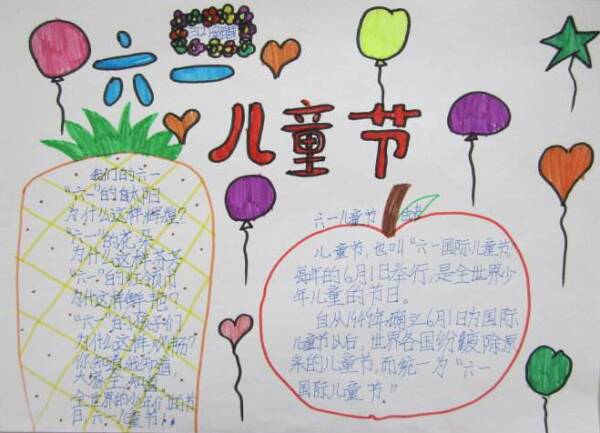 六一
儿童节
我们的六一
"六一"的太阳
为什么这样辉煌?
"六一"的花朵
为什么这样芬芳
"六一"的红领巾
为什么这样鲜艳?
"六一"的孩子们
为什么这样欢畅?
你知道我知道,
大家全知道,
全世界的少年们的节
日六一儿童节!
六一儿童节
儿童节,也叫"六一国际儿童节,
每年的6月1日举行,是全世界少
年儿童的节日。
自从1949年 6月1日为国际
儿童节以后,世界各国纷 废除原
来的儿童节,而统一为"六一
国际儿童节。"